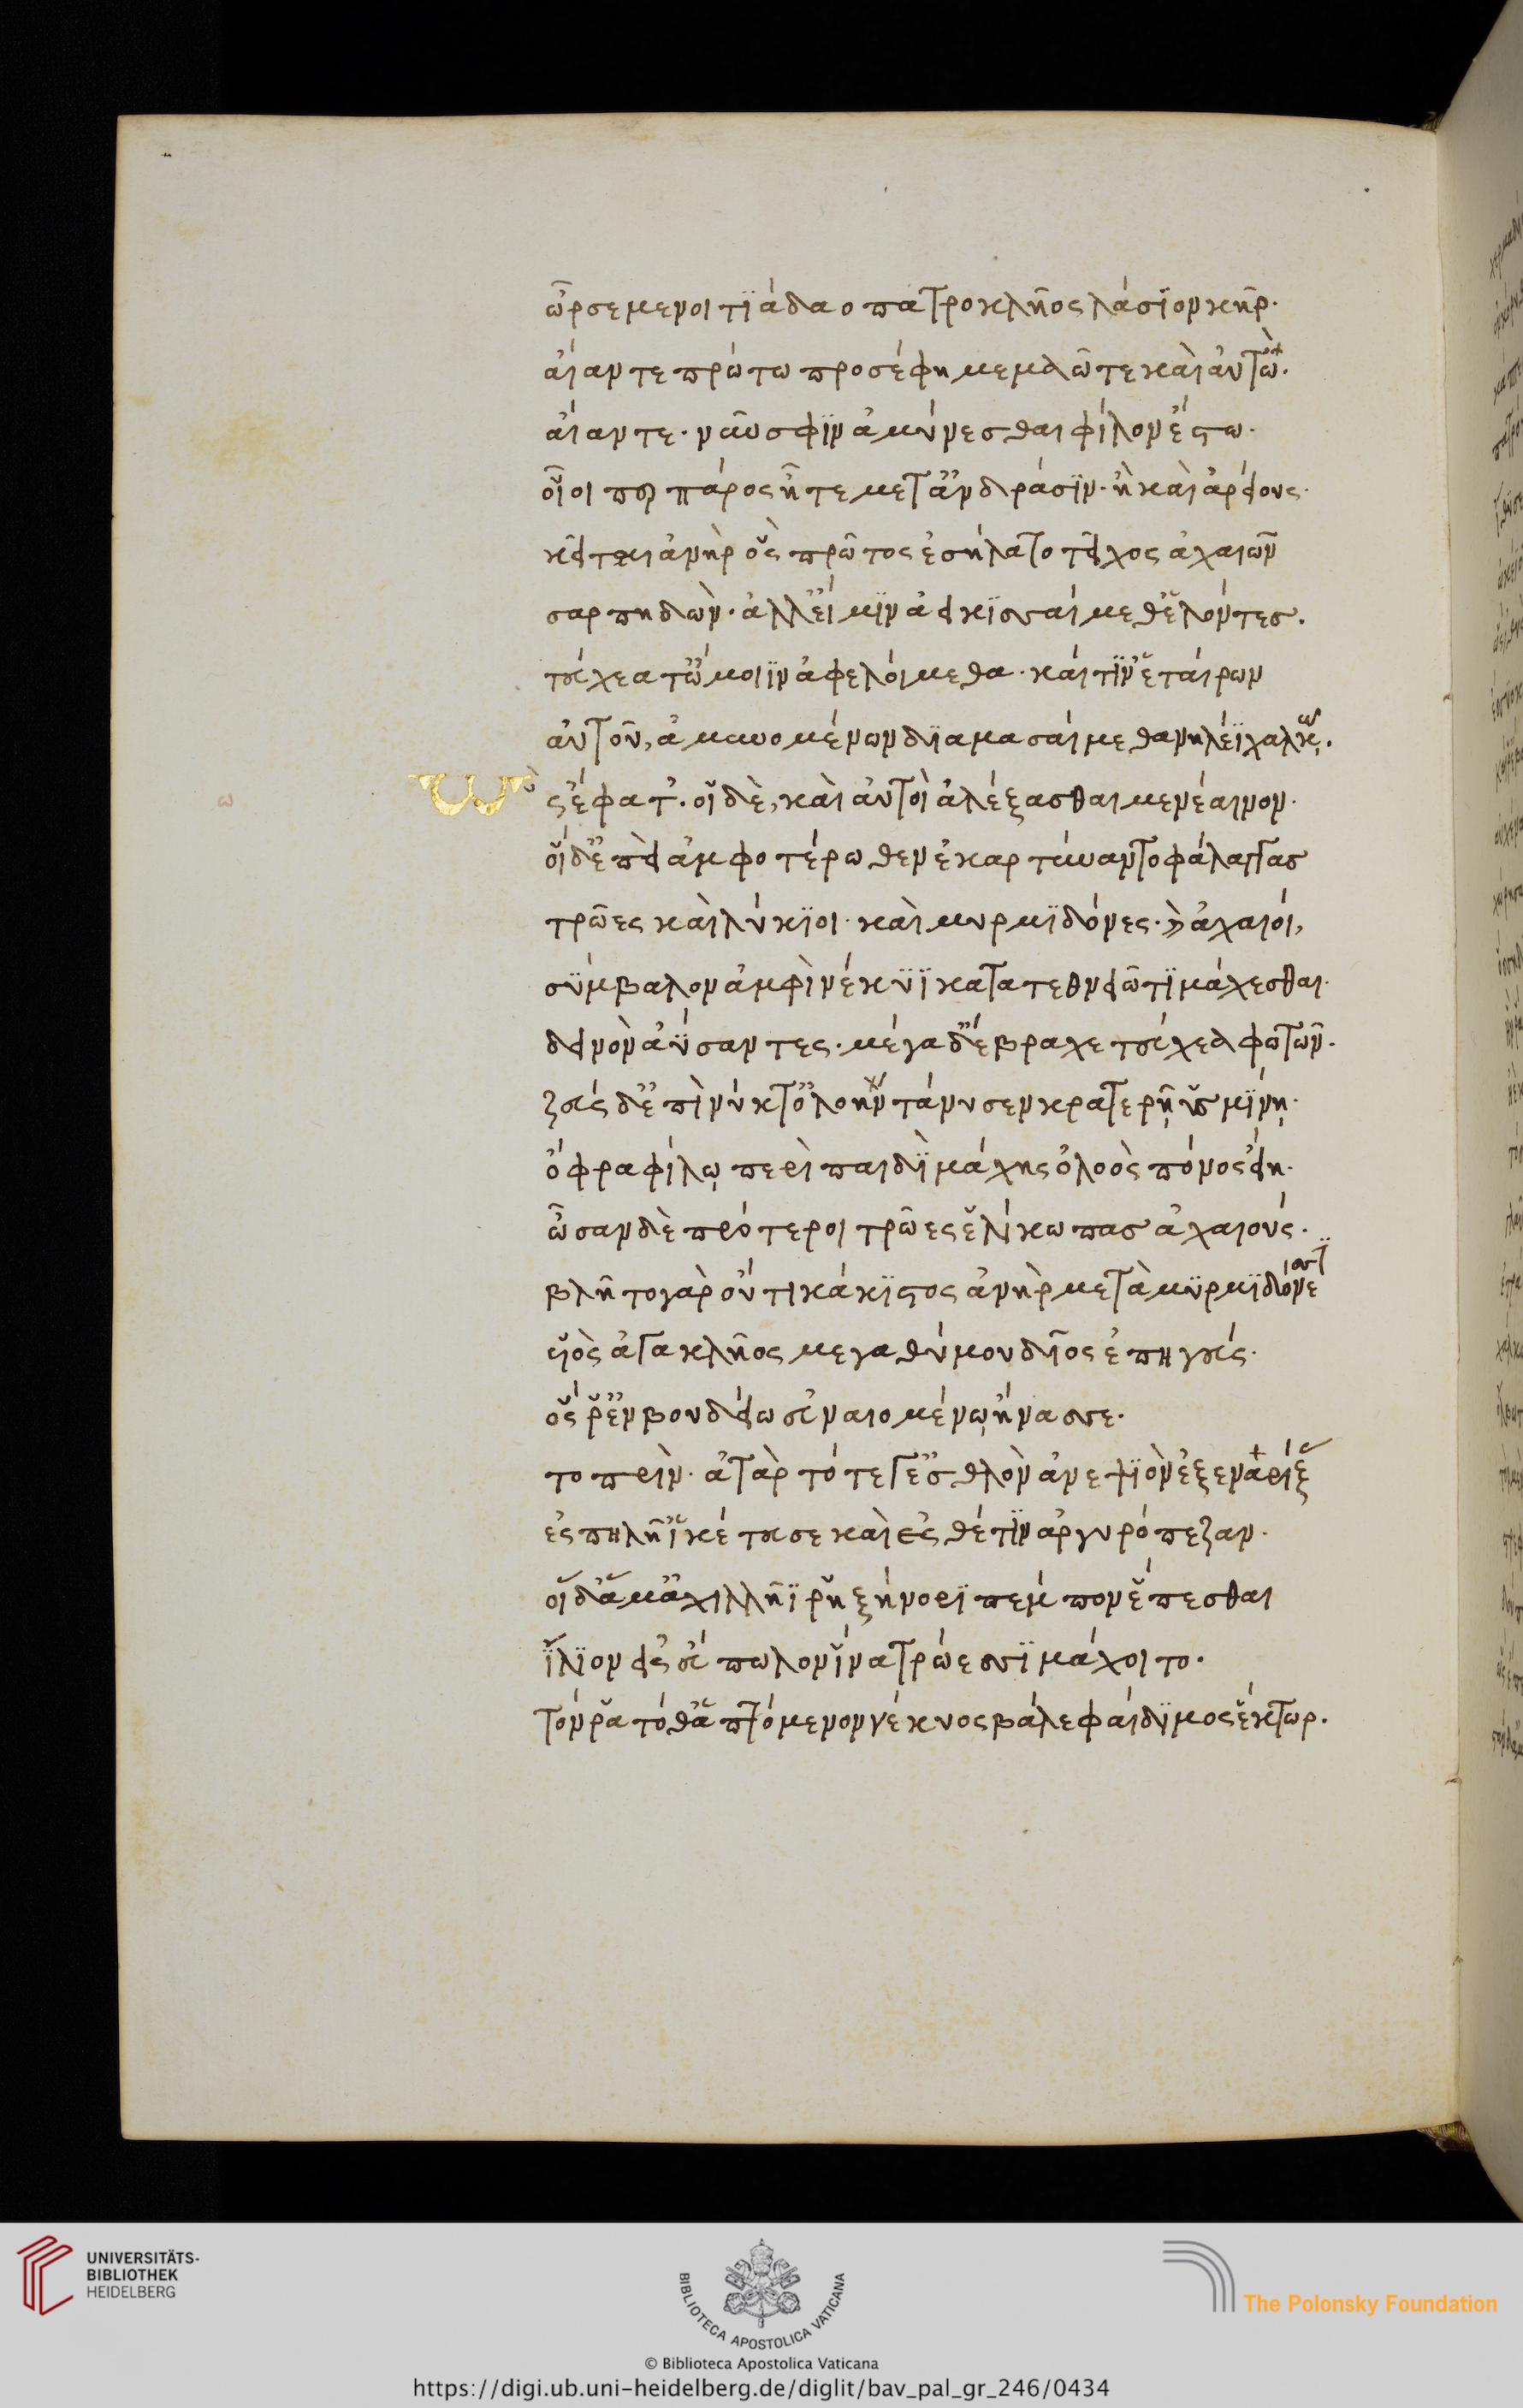 ὦρσε μενοιτϊάδαο πατροκλῆος λάσϊον κῆρ·
αἴαντε πρώτω προσέφη μεμαῶτε καὶ αὐτώ·
αἴαντε· νῦν σφϊν ἀμύνεσθαι φίλον ἔστω·
οἷοί περ πάρος ἦτε μετ' ἀνδράσϊν· ἢ καὶ ἀρείους·
κεῖται ἀνὴρ ὃς πρῶτος ἐσήλατο τεῖχος ἀχαιῶν
σαρπηδών· ἀλλ' εἴ μϊν ἀεικϊσσαίμεθ' ἑλόντες·
τεύχεά τ' ὤμοιϊν ἀφελοίμεθα· καί τϊν' ἑταίρων
αὐτοῦ, ἀμυνομένων δϊαμασαίμεθα νηλέϊ χαλκῷ·
ὣς ἔφατ'· οἳ δὲ, καὶ αὐτοὶ ἀλέξασθαι μενέαινον·
οἳ δ' ἐπεὶ ἀμφοτέρωθεν ἐκαρτύναντο φάλαγγας
τρῶες καὶ λύκϊοι· καὶ μυρμϊδόνες· καὶ ἀχαιοί,
σΰμβαλον ἀμφὶ νέκϋϊ κατατεθνειῶτϊ μάχεσθαι·
δεινὸν ἀΰσαντες· μέγα δ' ἔβραχε τεύχεα φωτῶν·
ζεὺς δ' ἐπὶ νύκτ' ὀλοὴν τάνυσεν κρατερῇ ὑσμίνῃ·
ὄφρα φίλῳ περὶ παιδὶ μάχης ὀλοὸς πόνος εἴη·
ὦσαν δὲ πρότεροι τρῶες ἑλίκωπας ἀχαιούς·
βλῆτο γὰρ οὔ τι κάκϊστος ἀνὴρ μετὰ μϋρμϊδόνεσσϊ
υἱὸς ἀγακλῆος μεγαθύμου δῖος ἐπηγεύς·
ὅς ῥ' ἐν βουδείω εὐναιομένῳ ἤνασσε·
τοπρὶν· ἀτὰρ τότε γ' ἐσθλὸν ἀνεψϊὸν ἐξεναρίξας
ἐς πηλῆ' ἱκέτευσε καὶ ἐς θέτϊν ἀργυρόπεζαν·
οἳ δ' ἅμ' ἀχιλλῆϊ ῥηξήνορϊ πέμπον ἕπεσθαι
ἴλϊον εἰς εὔπωλον ἵνα τρώεσσϊ μάχοιτο·
τόν ῥα τόθ' ἁπτόμενον νέκυος βάλε φαίδϊμος ἕκτωρ·
ω
UNIVERSITÄTS-
BIBLIOTHEK
HEIDELBERG
BIBLIOTECA APOSTOLICA VATICANA
© Biblioteca Apostolica Vaticana
The Polonsky Foundation
https://digi.ub.uni-heidelberg.de/diglit/bav_pal_gr_246/0434